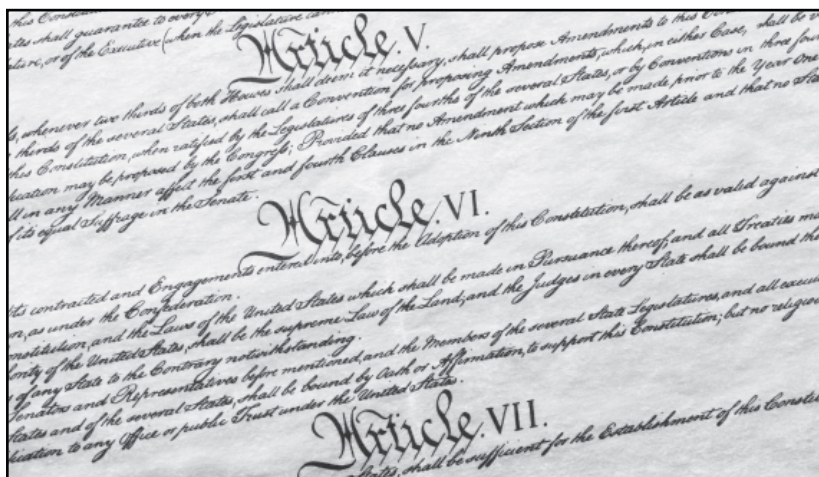 this Constitu
ates shall guarantee to every
ature, or of the Executive (when the Legislature cann
Article. V.
whenever two thirds of both Houses shall deem it necessary, shall propose Amendments to this Con
thirds of the several States, shall call a Convention for proposing Amendments, which, in either Case, shall be v
this Constitution, when ratified by the Legislatures of three fourths of the several States, or by Conventions in three four
fication may be proposed by the Congress; Provided that no Amendment which may be made prior to the Year One
ll in any Manner affect the first and fourth Clauses in the Ninth Section of the first Article and that no Sta
of its equal Suffrage in the Senate.
Article. VI.
bts contracted and Engagements entered into, before the Adoption of this Constitution, shall be as valid against
on, as under the Confederation.
onstitution, and the Laws of the United States which shall be made in Pursuance thereof; and all Treaties ma
hority of the United States, shall be the supreme Law of the Land; and the Judges in every State shall be bound the
of any State to the Contrary notwithstanding.
Senators and Representatives before mentioned, and the Members of the several State Legislatures, and all execu
States and of the several States, shall be bound by Oath or Affirmation, to support this Constitution; but no religiou
fication to any Office or public Trust under the United States.
Article. VII.
States, shall be sufficient for the Establishment of this Consti